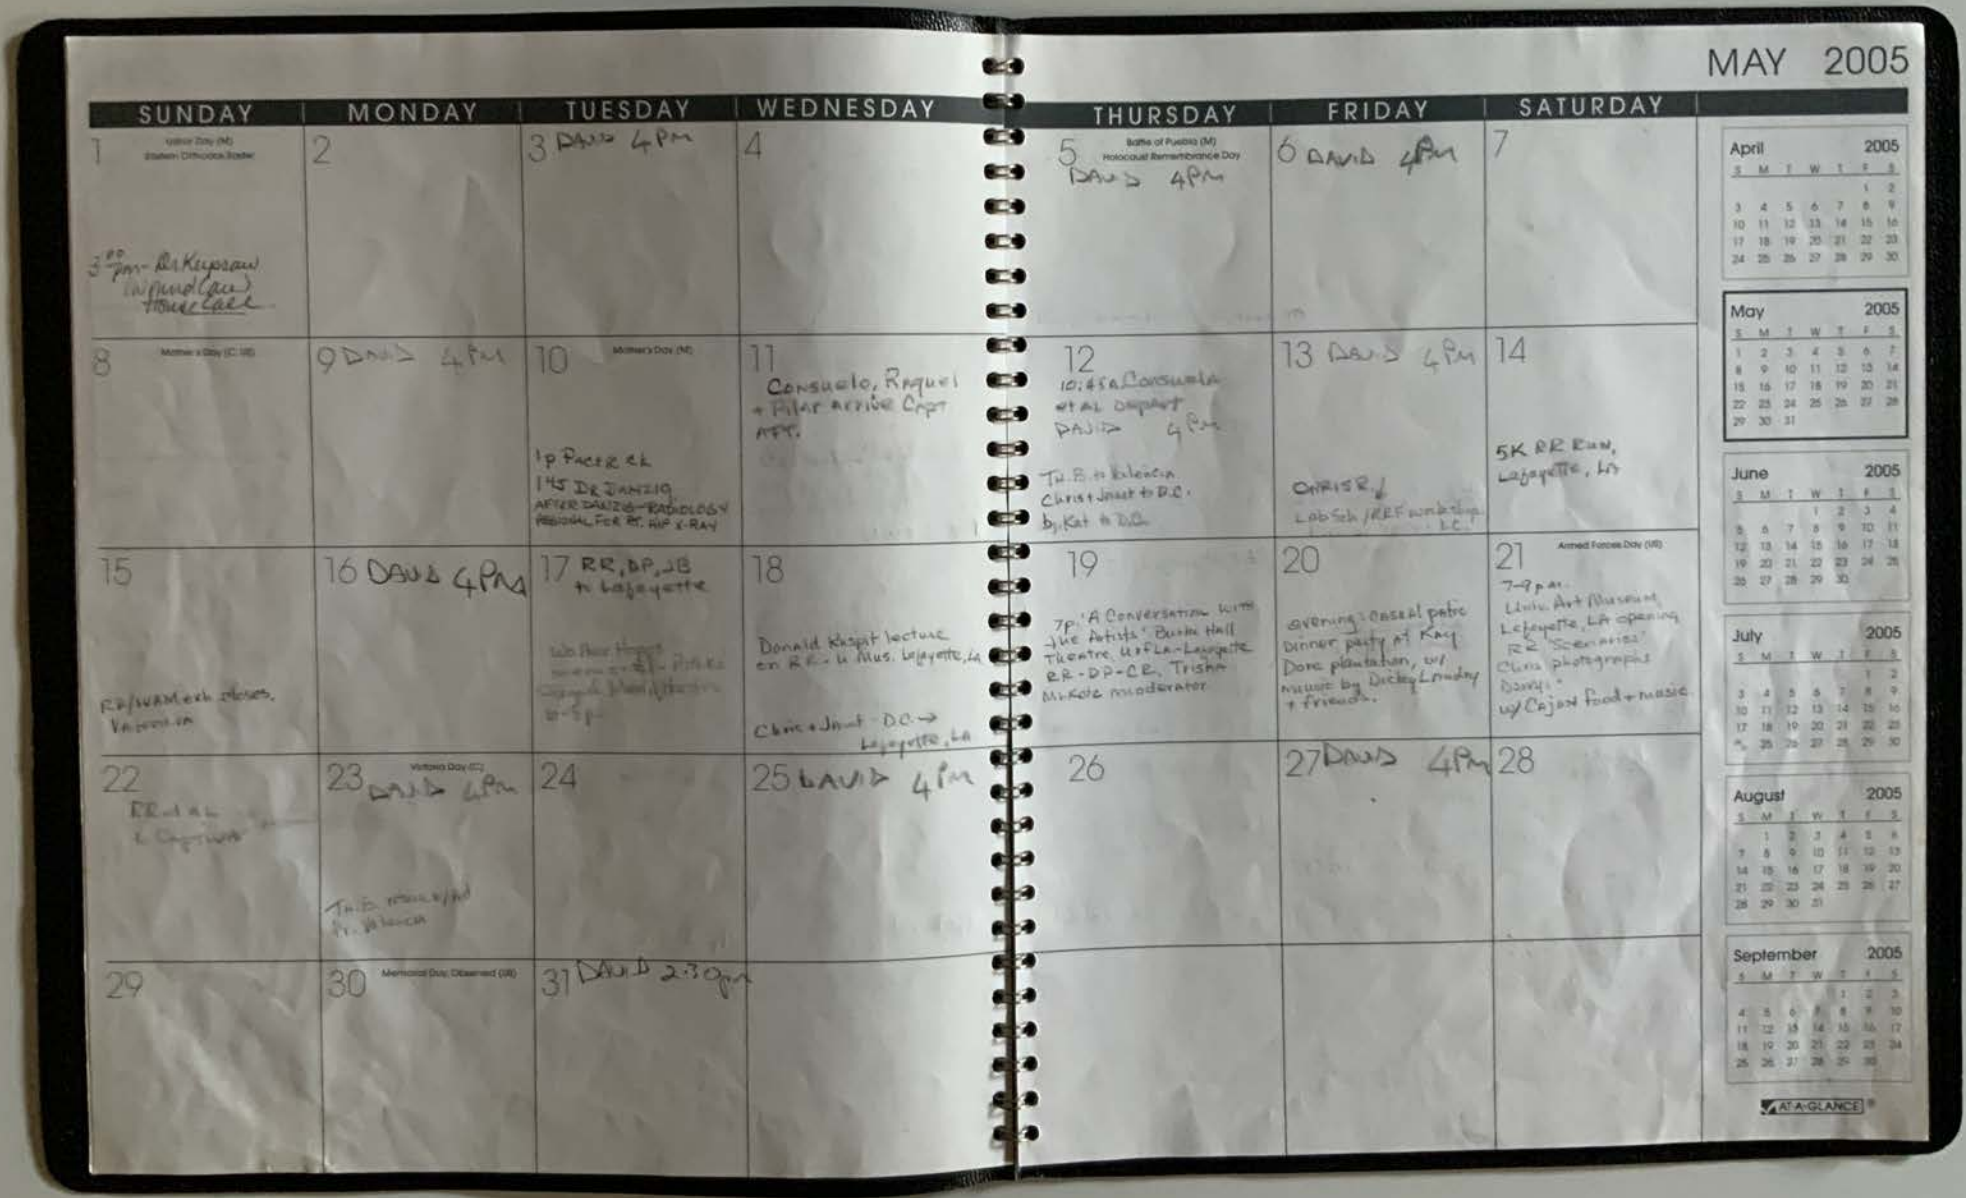 MAY 2005
SUNDAY MONDAY TUESDAY WEDNESDAY THURSDAY FRIDAY SATURDAY
1
Labor Day (M)
Eastern Orthodox Easter
3 00 pm - Dr
House Call
2
3 DAVID 4 PM
4
5
Battle of Puebla (M)
Holocaust Remembrance Day
DAVID 4 PM
6 DAVID 4 PM
7
8 Mother's Day (C, US)
9 DAVID 4 PM
10 Mother's Day (M)
1p
145 DR DANZIG
AFTER DANZIG-RADIOLOGY
REGIONAL FOR RT. HIP X-RAY
11
Consuelo, Raquel
+ Pilar arrive Capt
AFT.
12
10:45A Consuelo
et AL Depart
DAVID 4 PM
Tu. B. to Valencia
Chris + Janet to D.C.
by Kat to D.C.
13 DAVID 4 PM
CHRIS R.
Lab Sch / RRF workshop
14
5K RR RUN,
Lafayette, LA
15
exh closes,
Valencia
16 DAVID 4 PM
17 RR, DP, JB
to Lafayette
18
Donald Kuspit lecture
on RR - U Mus. Lafayette, LA
Chris + Janet - D.C. →
Lafayette, LA
19
7p. 'A Conversation with
the Artists' Burke Hall
Theatre, U of LA-Lafayette
RR-DP-CR, Trisha
moderator
20
evening: casual patio
Dinner party at Kay
Dore plantation, w/
music by Dickey Landry
+ friends.
21 Armed Forces Day (US)
7-9 p.m.
Univ. Art Museum
Lafayette, LA opening
RR "Scenarios"
Chris photographs
w/ Cajun food + music
22
RR et AL
Captiva
23 Victoria Day (C)
DAVID 4 PM
Valencia
24
25 DAVID 4 PM
26
27 DAVID 4 PM
28
29
30 Memorial Day, Observed (US)
31 DAVID 2:30 pm
April 2005
S M T W T F S
1 2
3 4 5 6 7 8 9
10 11 12 13 14 15 16
17 18 19 20 21 22 23
24 25 26 27 28 29 30
May 2005
S M T W T F S
1 2 3 4 5 6 7
8 9 10 11 12 13 14
15 16 17 18 19 20 21
22 23 24 25 26 27 28
29 30 31
June 2005
S M T W T F S
1 2 3 4
5 6 7 8 9 10 11
12 13 14 15 16 17 18
19 20 21 22 23 24 25
26 27 28 29 30
July 2005
S M T W T F S
1 2
3 4 5 6 7 8 9
10 11 12 13 14 15 16
17 18 19 20 21 22 23
25 26 27 28 29 30
August 2005
S M T W T F S
1 2 3 4 5 6
7 8 9 10 11 12 13
14 15 16 17 18 19 20
21 22 23 24 25 26 27
28 29 30 31
September 2005
S M T W T F S
1 2 3
4 5 6 7 8 9 10
11 12 13 14 15 16 17
18 19 20 21 22 23 24
25 26 27 28 29 30
AT-A-GLANCE ®